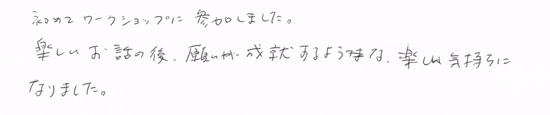 初めてワークショップに参加しました。
楽しいお話の後、願いが成就するような、楽しい気持ちに
なりました。